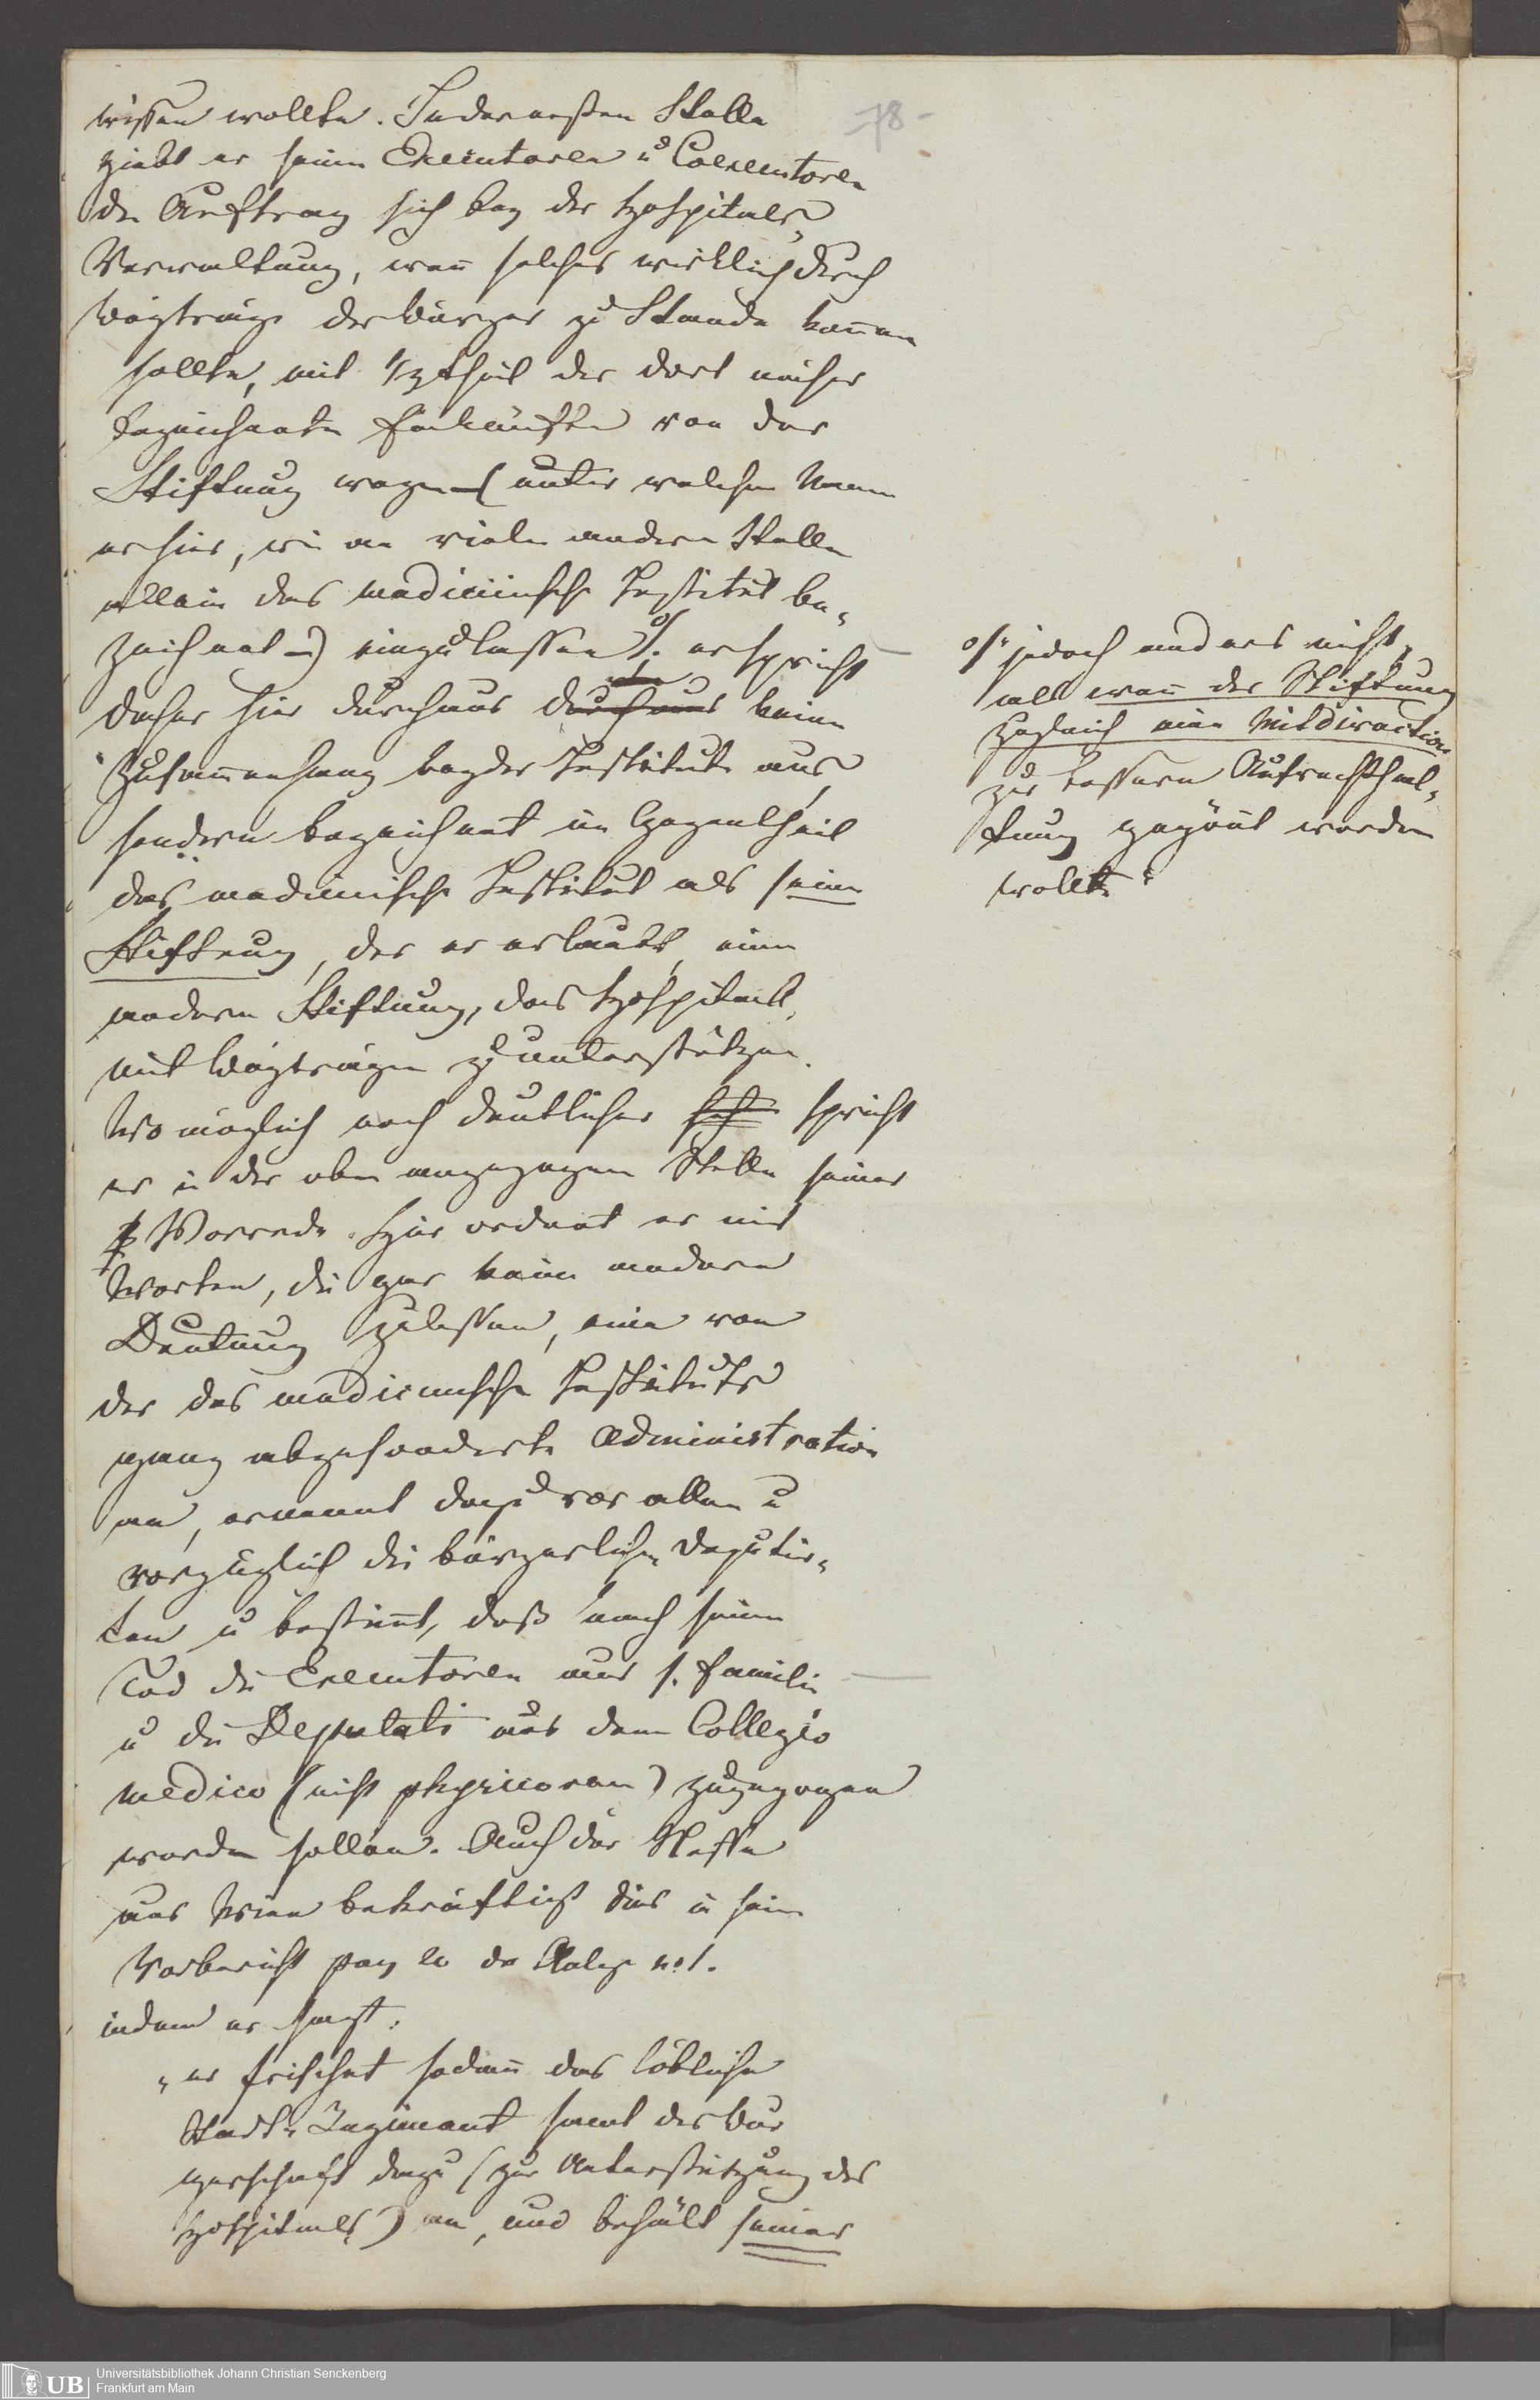 78
wissen wollte. In der ersten Stelle
giebt er seinen Executoren u Coexecutoren
den Auftrag sich bey der Hospitals-
Verwaltung, wenn solches wirklich durch
Beyträge der Bürger zu Stande kommen
sollte, mit 1/3 theil der dort näher
bezeichneten Einkünfte von der
Stiftung wegen –( unter welchem Namen
er hier, wie an vielen andern Stellen
allein das medicinische Institut be-
zeichnet –) einzulassen %. er spricht
daher hier durchaus durchaus keinen
Zusammenhang beyder Institute aus,
sondern bezeichnet im Gegentheil
das medicinische Institut als seine
Stiftung, der er erlaubt, eine
andere Stiftung, das Hospital,
mit Beyträgen zu unterstützen.
Wo möglich noch deutlicher spricht
er in der oben angezogenen Stelle seiner
Vorrede. Hier ordnet er mit
Worten, die gar keine andere
Deutung zulassen, eine von
der des medicinischen Instituts
ganz abgesonderte Administration
an, ernennt dazu vor allen u
vorzüglich die bürgerlichen Deputir-
ten u bestimmt, daß nach seinem
Tod die Executoren aus s. Familie
u die Deputati aus dem Collegio
medico (nicht physicorum) zugezogen
werden sollen. Auch der Neffe
aus Wien bekräftigt dies in sein
Vorbericht pag 20 der Anlage no 1.
indem er sagt:
„er frischet sodann das löbliche
Stadt-Regiment samt der Bür
gerschaft dazu (zur Unterstützung des
Hospitals) an, und behält seiner
% jedoch anders nicht,
als wenn der Stiftung
zugleich eine Mitdirection
zur bessern Aufrechthal-
tung gegönnt werden
wollte“
UB Universitätsbibliothek Johann Christian Senckenberg
Frankfurt am Main